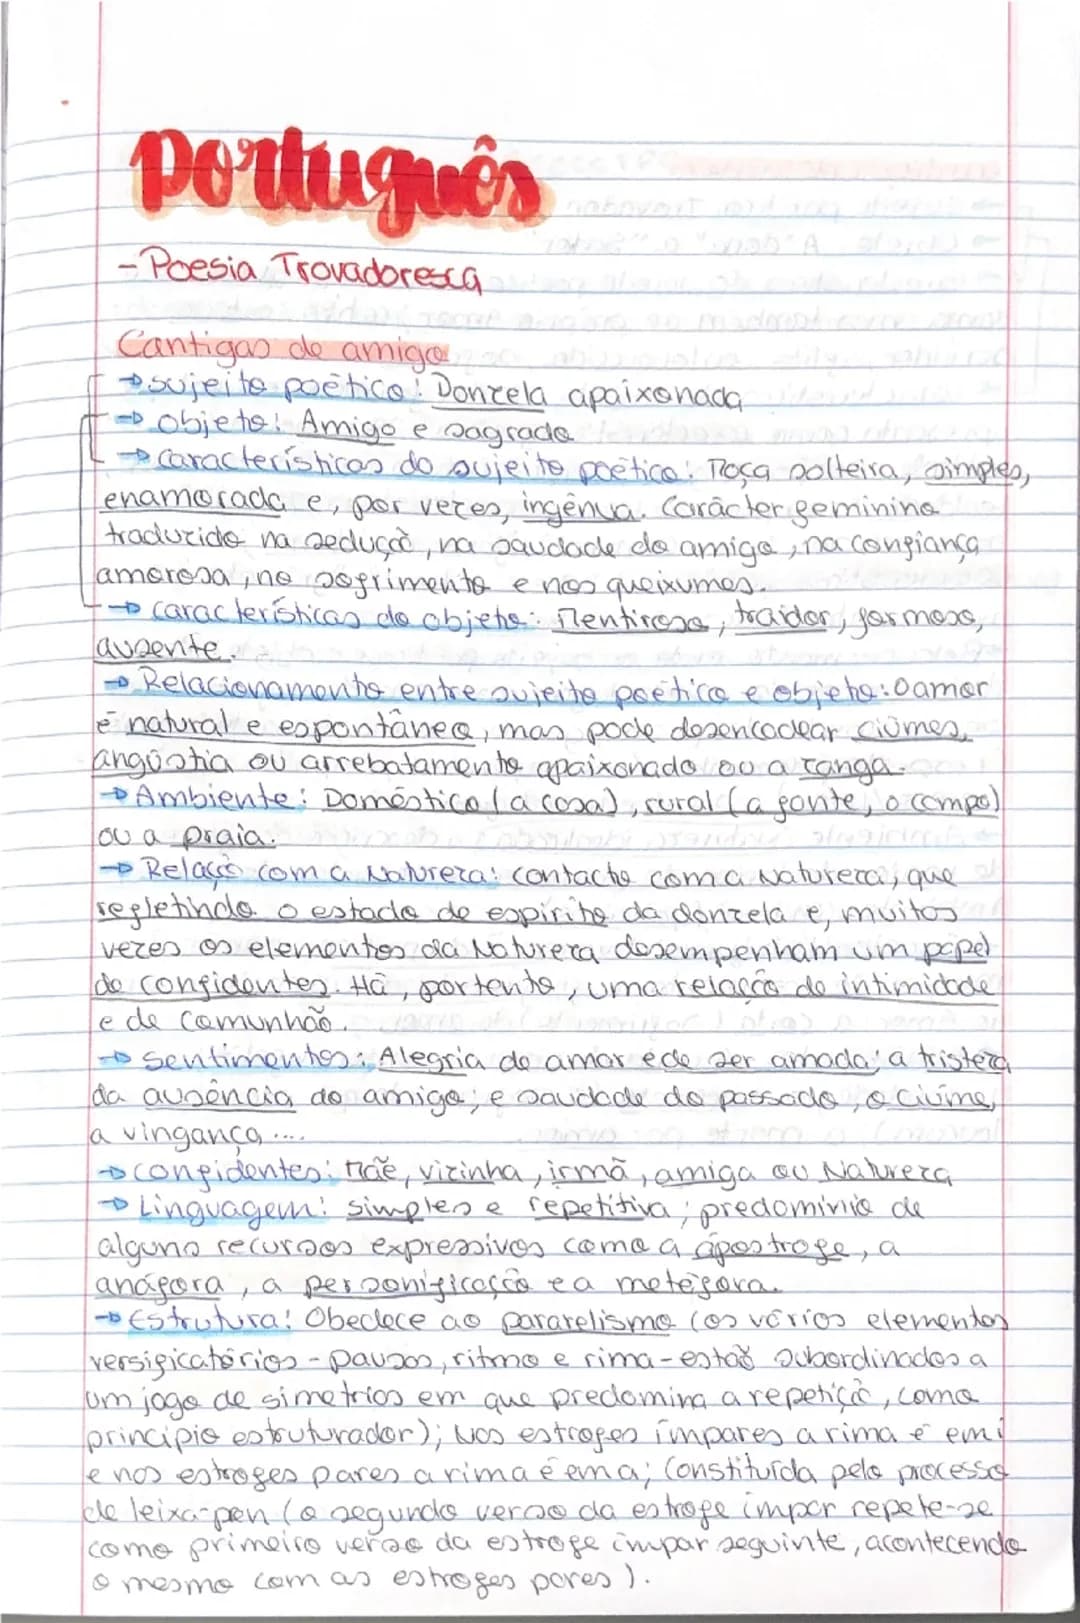 Português
- Poesia Trovadoresca
Cantigas de amigo
→ sujeito poético: Donzela apaixonada
→ objeto: Amigo e sagrado
→ características do sujeito poético: Moça solteira, simples,
enamorada e, por vezes, ingénua. Carácter feminino
traduzido na sedução, na saudade do amigo, na confiança
amorosa, no sofrimento e nos queixumes.
→ características do objeto: Mentiroso, traidor, formoso,
ausente.
→ Relacionamento entre sujeito poético e objeto: O amor
é natural e espontâneo, mas pode desencadear ciúmes,
angústia ou arrebatamento apaixonado ou a zanga.
→ Ambiente: Doméstico (a casa), rural (a fonte, o campo)
ou a praia.
→ Relação com a Natureza: contacto com a Natureza, que
refletindo o estado de espírito da donzela e, muitos
vezes os elementos da Natureza desempenham um papel
de confidentes. Há, portento, uma relação de intimidade
e de comunhão.
→ sentimentos: Alegria de amar e de ser amada; a tristeza
da ausência do amigo; e saudade do passado, o ciúme,
a vingança....
→ confidentes: Mãe, vizinha, irmã, amiga ou Natureza
→ Linguagem: simples e repetitiva; predomínio de
alguns recursos expressivos como a apóstrofe, a
anáfora, a personificação e a metáfora.
→ Estrutura: Obedece ao pararelismo (os vários elementos
versificatórios - pausas, ritmo e rima - estão subordinados a
um jogo de simetrias em que predomina a repetição, como
princípio estruturador); Nos estrofes ímpares a rima é em i
e nos estrofes pares a rima é em a; Constituída pelo processo
de leixa-pren (o segundo verso da estrofe ímpar repete-se
como primeiro verso da estrofe ímpar seguinte, acontecendo
o mesmo com as estrofes pares).